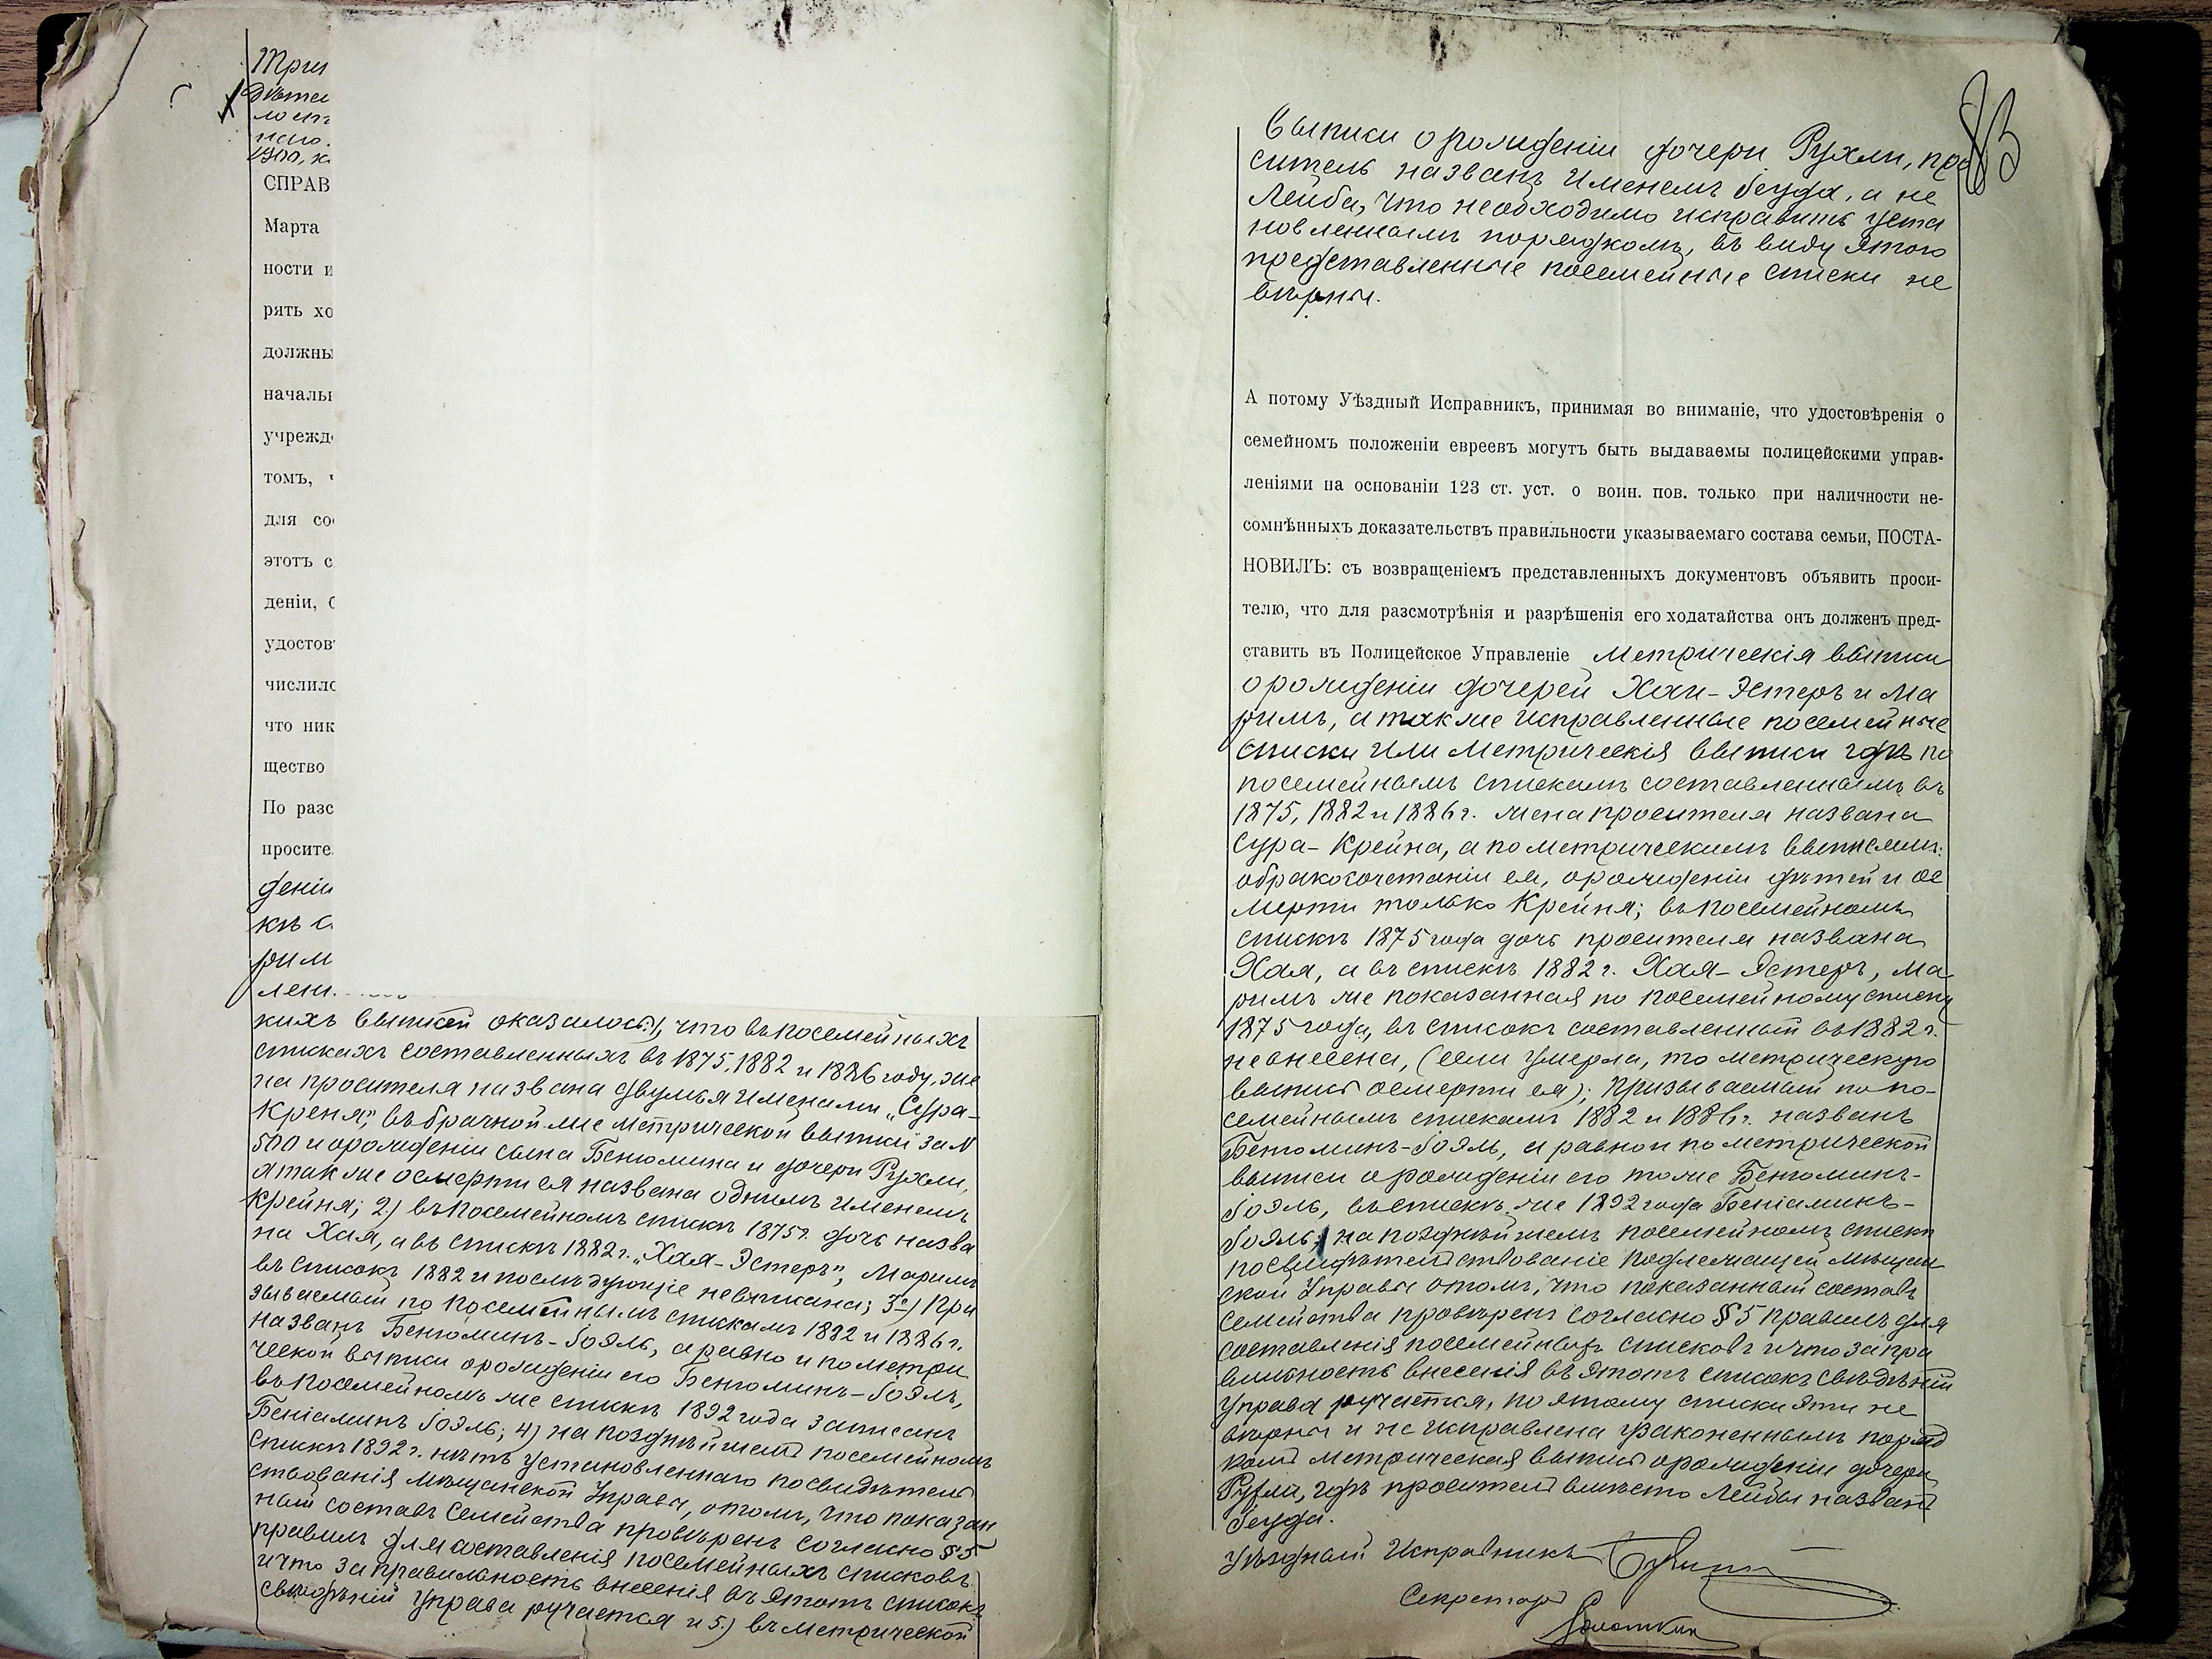 Три
дѣте
лост
наго.
1900, к
СПРАВ
Марта
ности и
рять хо
должны
началы
учрежд
томъ, ч
для со
этотъ с
деніи,
удостов
числило
что ник
щество
По разс
просите
деніи
къ с
рим
лен
кихъ выписей оказалось: 1), что въ посемейныхъ
спискахъ составленныхъ въ 1875, 1882 и 1886 году, же
на просителя названа двумя именами „Сура-
Креня", въ брачной же метрической выписи за №
500 и о рожденіи сына Бенюмина и дочери Рухли,
а также о смерти ея названа однимъ именемъ
Крейня; 2) въ посемейномъ спискѣ 1875 г. дочь назва
на Хая, а въ спискѣ 1882 г. „Хая-Эстеръ", Маримъ
въ списокъ 1882 и послѣдующіе не вписана; 3) При
зываемый по посемейнымъ спискамъ 1882 и 1886 г.
названъ Бенюминъ-Іоэль, а равно и по метри
ческой выписи о рожденіи его Бенюминъ-Іоэль,
въ посемейномъ же спискѣ 1892 года записанъ
Беніаминъ Іоэль; 4) на позднѣйшемъ посемейномъ
спискѣ 1892 г. нѣтъ установленнаго посвидѣтель
ствованія Мѣщанской Управы, о томъ, что показан
ный составъ семейства провѣренъ согласно § 5
правилъ для составленія посемейныхъ списковъ
и что за правильность внесенія въ этотъ списокъ
свѣдѣній Управа ручается и 5) въ метрической
83
выписи о рожденіи дочери Рухли, про
ситель названъ именемъ Іегуда, а не
Лейба, что необходимо исправить уста
новленнымъ порядкомъ, въ виду этого
представленные посемейные списки не
вѣрны.
А потому Уѣздный Исправникъ, принимая во вниманіе, что удостовѣренія о
семейномъ положеніи евреевъ могутъ быть выдаваемы полицейскими управ-
леніями на основаніи 123 ст. уст. о воин. пов. только при наличности не-
сомнѣнныхъ доказательствъ правильности указываемаго состава семьи, ПОСТА-
НОВИЛЪ: съ возвращеніемъ представленныхъ документовъ объявить проси-
телю, что для разсмотрѣнія и разрѣшенія его ходатайства онъ долженъ пред-
ставить въ Полицейское Управленіе Метрическія выписи
о рожденіи дочерей Хаи-Эстеръ и Ма
римъ, а также исправленные посемейные
списки или метрическія выписи гдѣ по
посемейнымъ спискамъ составленнымъ въ
1875, 1882 и 1886 г. жена просителя названа
Сура-Крейна, а по метрическимъ выписямъ:
о бракосочетаніи ея, о рожденіи дѣтей и о с
мерти только Крейня; въ посемейномъ
спискѣ 1875 года дочь просителя названа
Хая, а въ спискѣ 1882 г. Хая-Эстеръ, Ма
римъ же показанная по посемейному списку
1875 года, въ списокъ составленный въ 1882 г.
не внесена, (если умерла, то метрическую
выпись о смерти ея); призываемый по по-
семейнымъ спискамъ 1882 и 1886 г. названъ
Бенюминъ-Іоэль, и равнои по метрической
выписи о рожденіи его тоже Бенюминъ-
Іоэль, въ спискѣ же 1892 года Беніаминъ-
Іоэль; на позднѣйшемъ посемейномъ спискѣ
посвидѣтельствованіе подлежащей Мѣщан
ской Управы о томъ, что показанный составъ
семейства провѣренъ согласно § 5 правилъ для
составленія посемейныхъ списковъ и что за пра
вильность внесенія въ этотъ списокъ свѣдѣній
Управа ручается, по этому списки эти не
вѣрны и не исправлена узаконеннымъ поряд
комъ метрическая выпись о рожденіи дочери
Рухли, гдѣ проситель вмѣсто Лейбы названъ
Іегуда.
Уѣздный Исправникъ
Секретарь